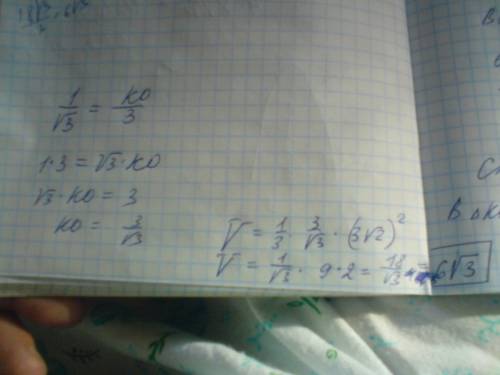 18√3
1/√3 = KO/3
1·3 = √3·KO
√3·KO = 3
KO = 3/√3
V = 1/3 · 3/√3 · (3√2)²
V = 1/√3 · 9·2 = 18/√3 = 6√3